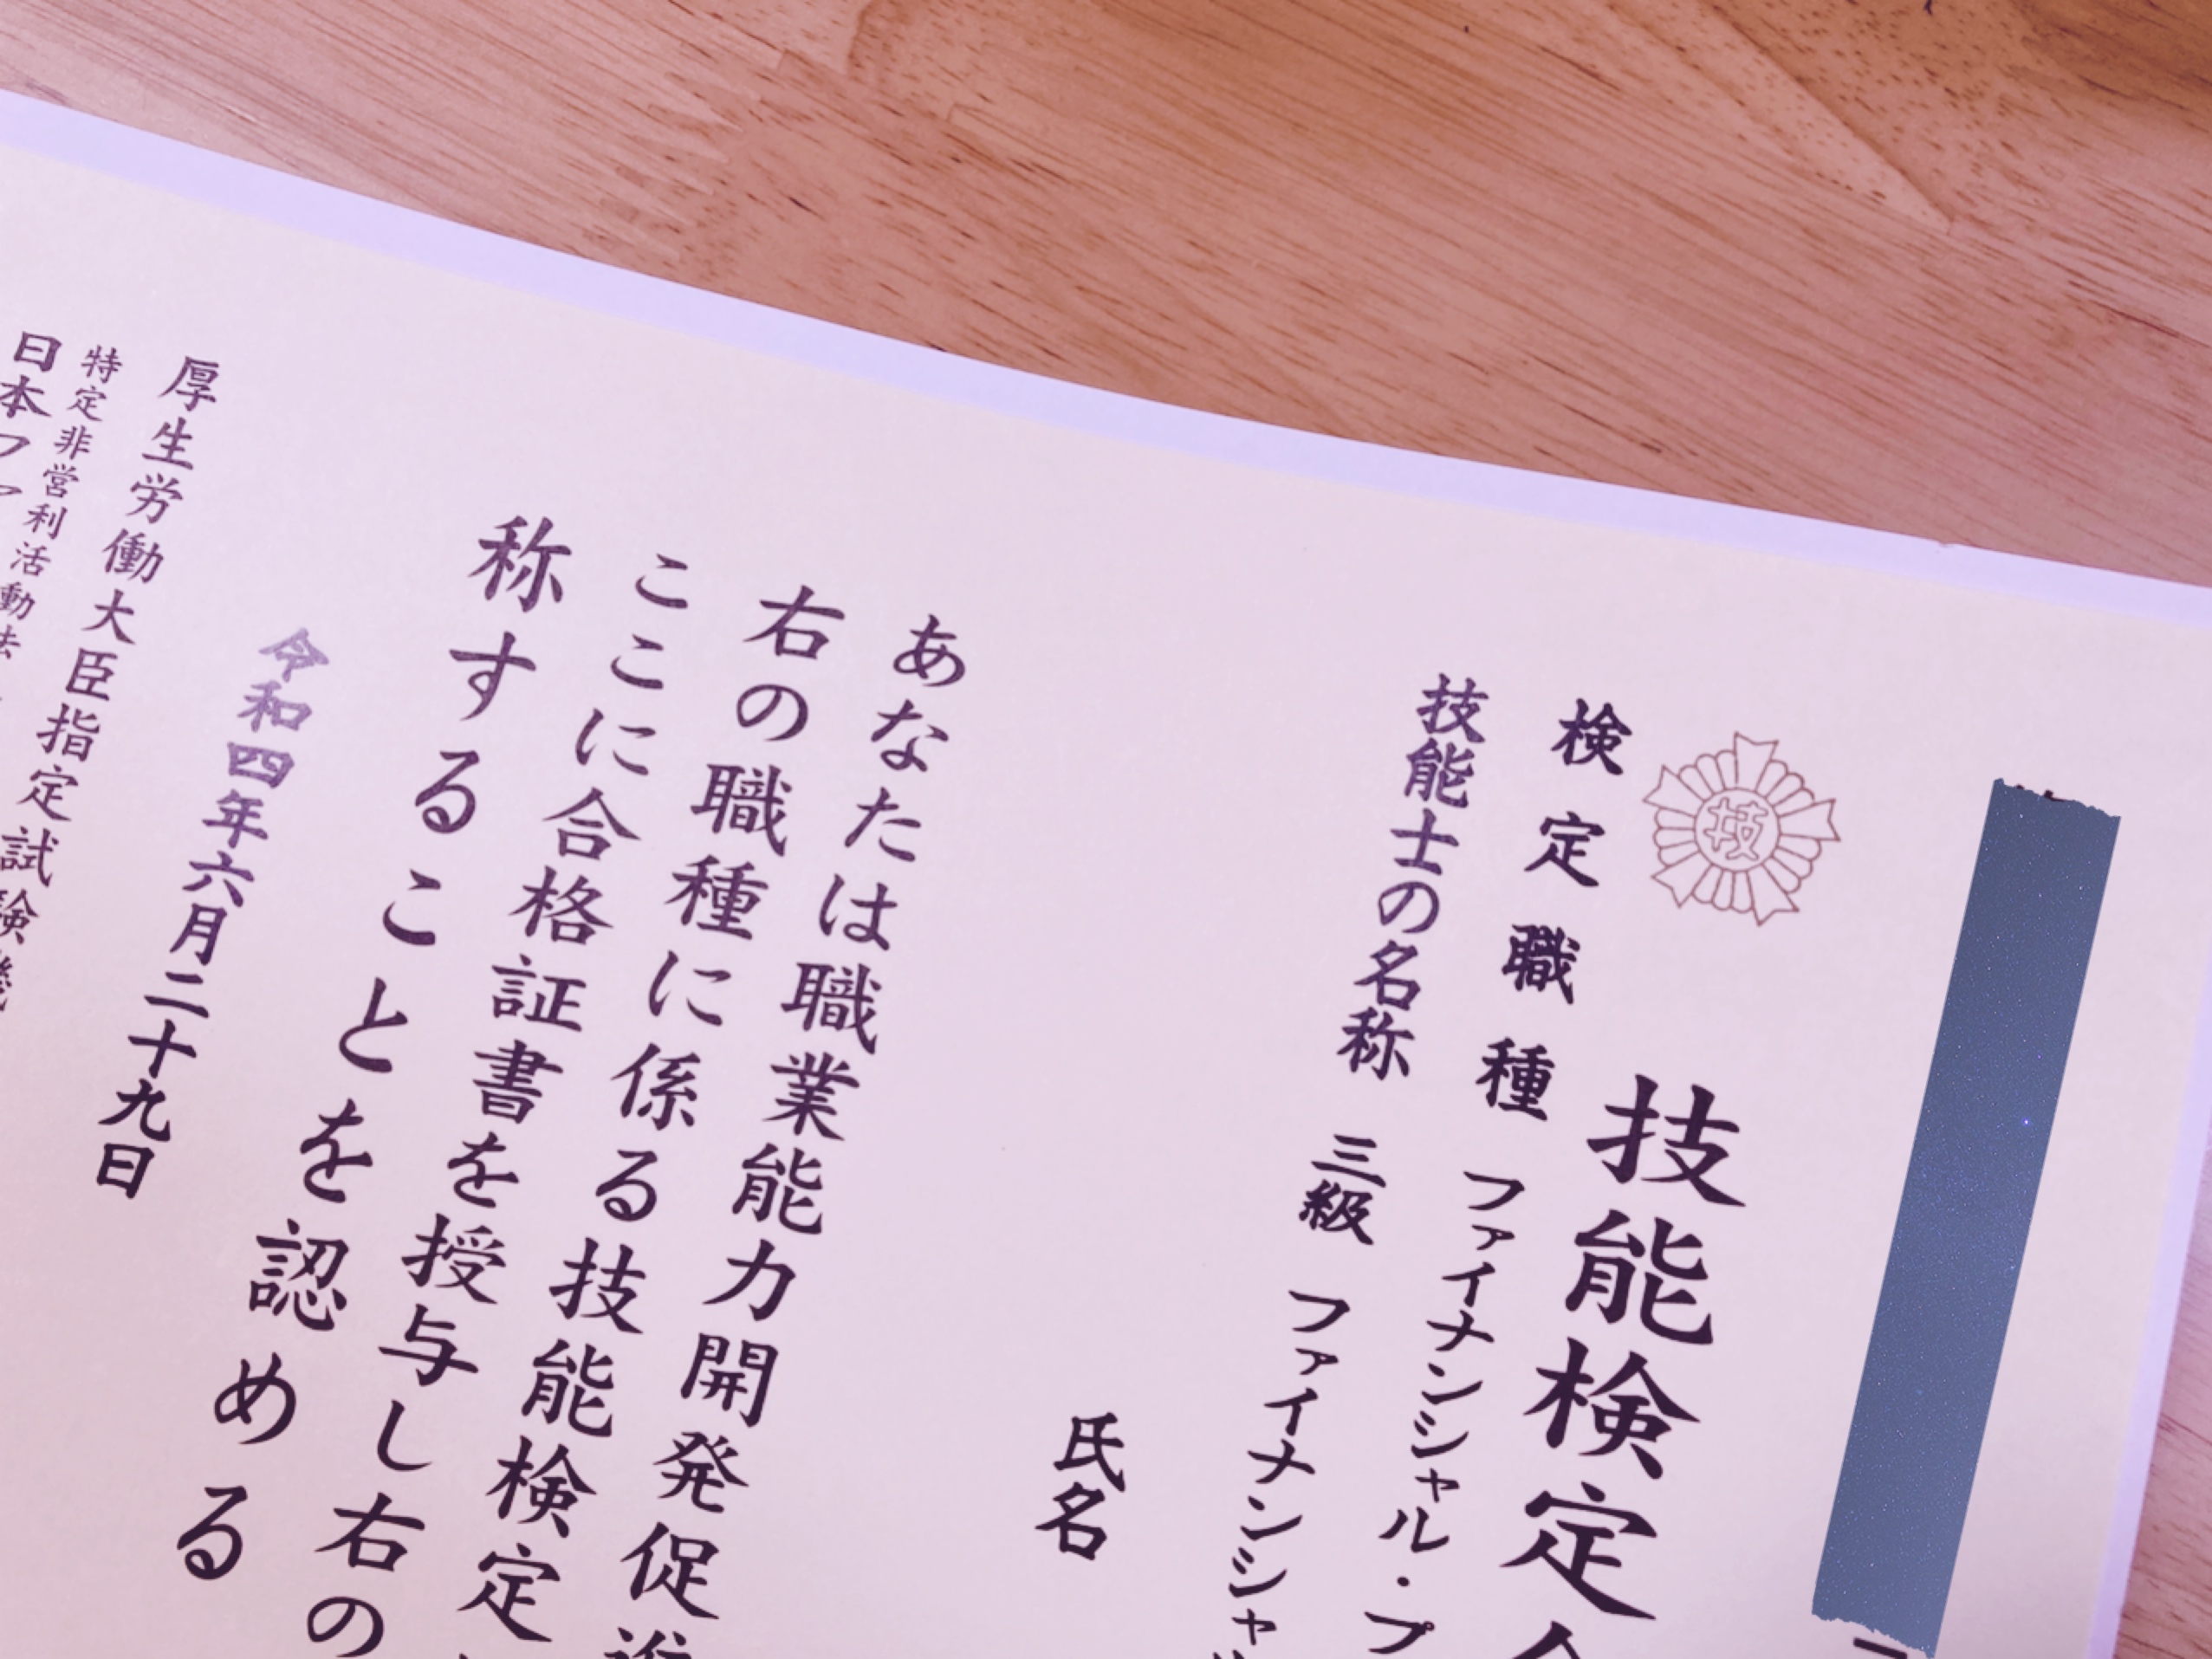 技能検定
技
検定職種 ファイナンシャル・プ
技能士の名称 三級 ファイナンシャル
氏名
あなたは職業能力開発促進
右の職種に係る技能検定
ここに合格証書を授与し右の
称することを認める
令和四年六月二十九日
厚生労働大臣指定試験機
特定非営利活動法
日本ファ